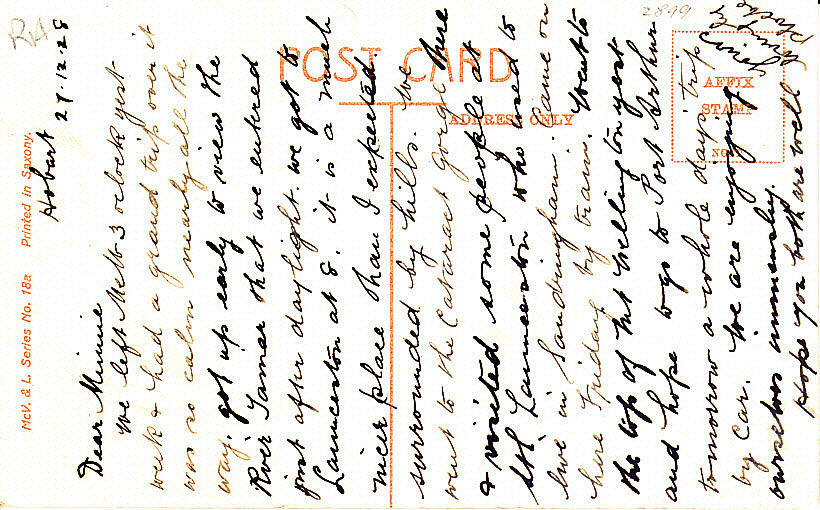 R4
2899
POST CARD
ADDRESS ONLY
AFFIX
STAMP
McV. & L. Series No. 18a Printed in Saxony.
Hobart 27.12.28
Dear Minnie
we left Melb 3 oclock yest
week & had a grand trip over it
was so calm nearly all the
way, got up early to view the
River Tamar that we entered
just after daylight. we got to
Launceston at 8. it is a much
nicer place than I expected.
surrounded by hills. We
went to the Cataract Gorge there
& visited some people at
Sth Launceston who used to
live in Sandringham. Came on
here Friday by train. Went to
the top of Mt Wellington yest
and hope to go to Port Arthur
tomorrow a whole days trip
by car. We are enjoying
ourselves immensely.
Hope you both are well